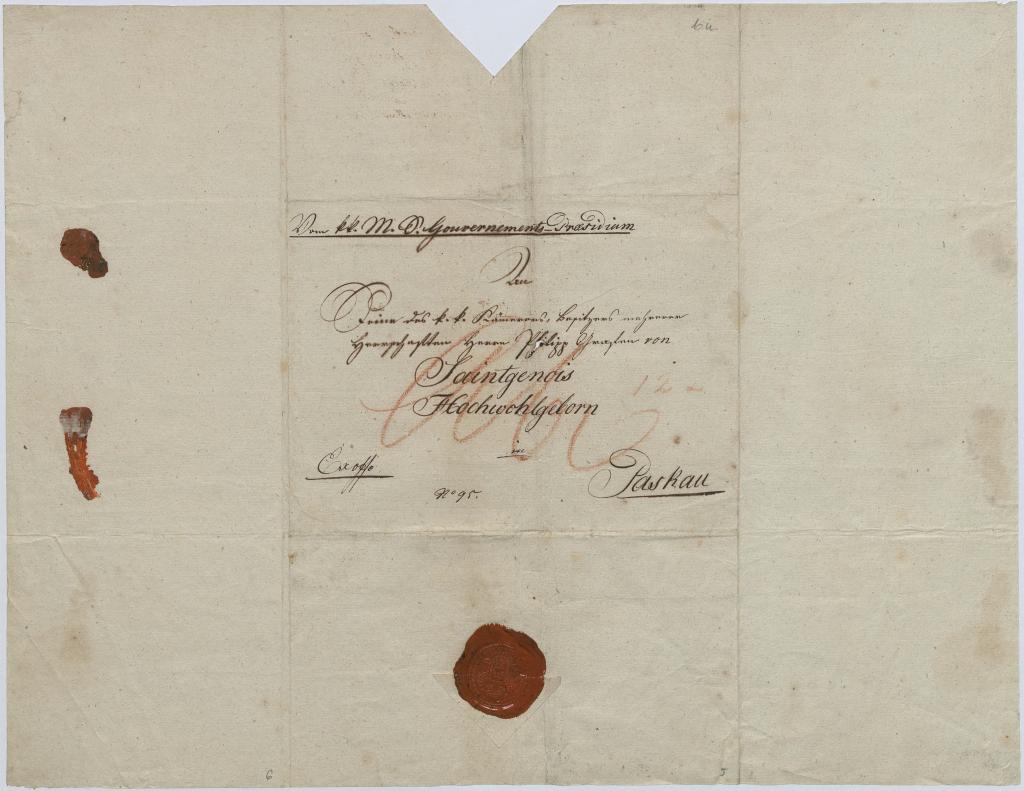 Vom kk. M. S. Gouvernements-Præsidium
An
Seine des k. k. Kämerers, Besitzers mehrerer
Herrschaften Herrn Philipp Grafen von
Saintgenois
Hochwohlgeborn
in
Ex offo
Paskau
No 95.
12
6
5